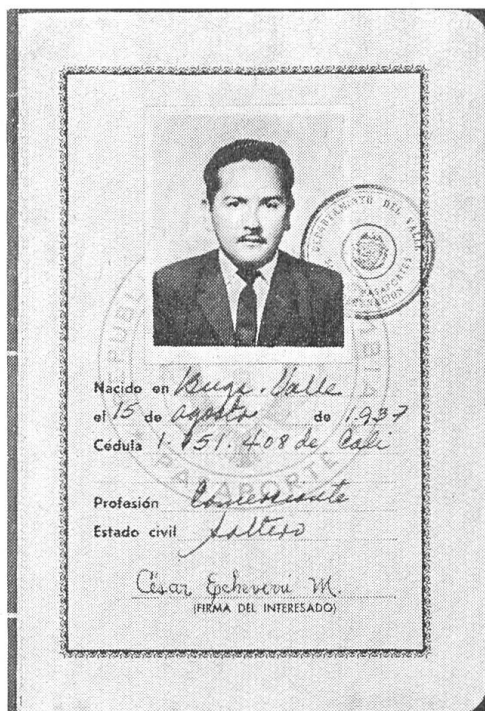 DEPARTAMENTO DEL VALLE
PASAPORTES
REPUBLICA COLOMBIA
PASAPORTE
Nacido en Buga - Valle
el 15 de agosto de 1.937
Cédula de Cali
Profesión Comerciante
Estado civil Soltero
César Echeverri M.
(FIRMA DEL INTERESADO)